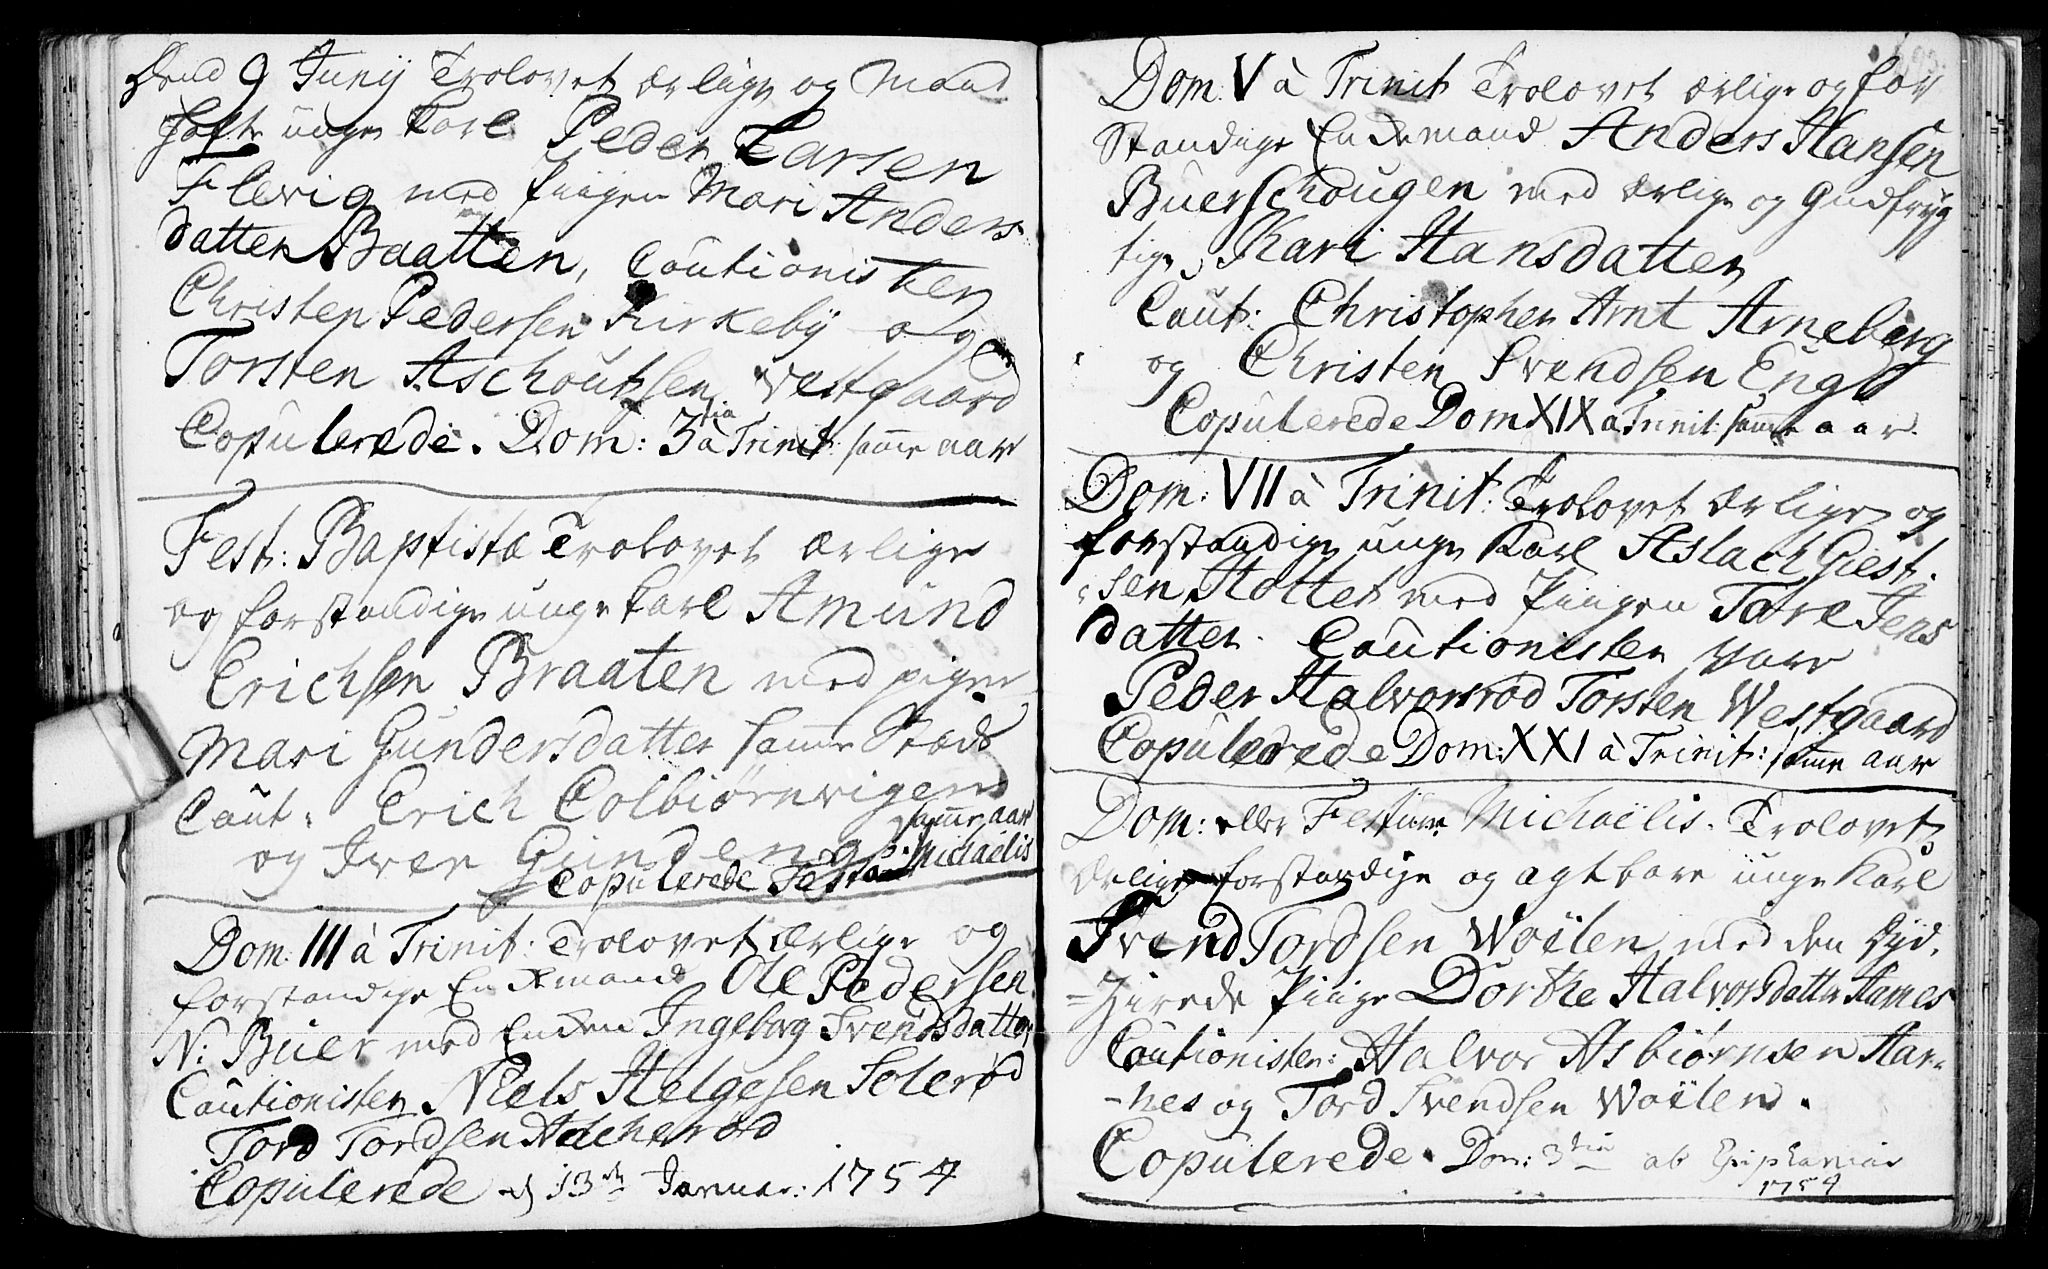 Dend 9 Junij Trolovet ærlige og Mand
hafte unge Karl Peder Larsen
Flevig med Piigen Mari Anders
datter Baatten, Cautionister
Christen Pedersen Kirkebÿ og
Torsten Aschoutsen Westgaard
Copulerede. Dom: 3tia à Trinit: samme aar
Fest: Baptistæ Trolovet ærlige
og forstandige unge Karl Amund
Erichsen Braaten med pigen
Mari Gundersdatter samme Stæds
Caut: Erich Colbiørnvigen
og Iver Gunderng samme aar
Copulerede Fest: Michaëlis
Dom: III à Trinit: Trolovet ærlige og
forstandige Enckemand Ole Pedersen
N: Buer med Encken Ingeborg Svendsdatter
Cautionister Niels Helgesen Solerød
Tord Tordsen Acherød
Copulerede d 13de Januar: 1754
Dom: V à Trinit Trolovet ærlige og for
standige Enckemand Anders Hansen
Buerschougen med ærlige og Gudfryg
tige Kari Hansdatter
Caut: Christopher Arnt Arneberg
og Christen Svendsen Eng
Copulerede Dom XIX à Trinit: samme aar.
Dom: VII à Trinit: Trolovet ærlige og
forstandige unge Karl Aslach Giest-
sen Holter med Piigen Tore Jens
datter. Cautionister vare
Peder Halvorsrød Torsten Westgaard
Copulerede Dom: XXI à Trinit: samme aar
Dom: eller Festum Michaëlis. Trolovet
ærlige forstandige og agtbare unge Karl
Svend Tordsen Woilen med den Dyd-
=zirede Piige Dorthe Halvorsdatter Hames
Cautionister: Halvor Asbiørnsen Har-
-nes og Tord Svendsen Woilen.
Copulerede. Dom: 3tia ab Epiphanias
1754